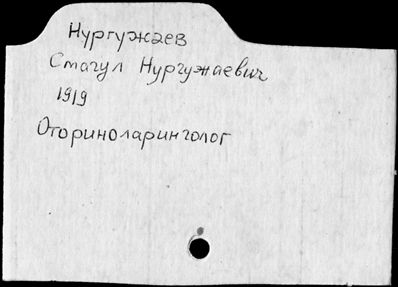 Нургужаев
Смагул Нургужаевич
1919
Оториноларинголог